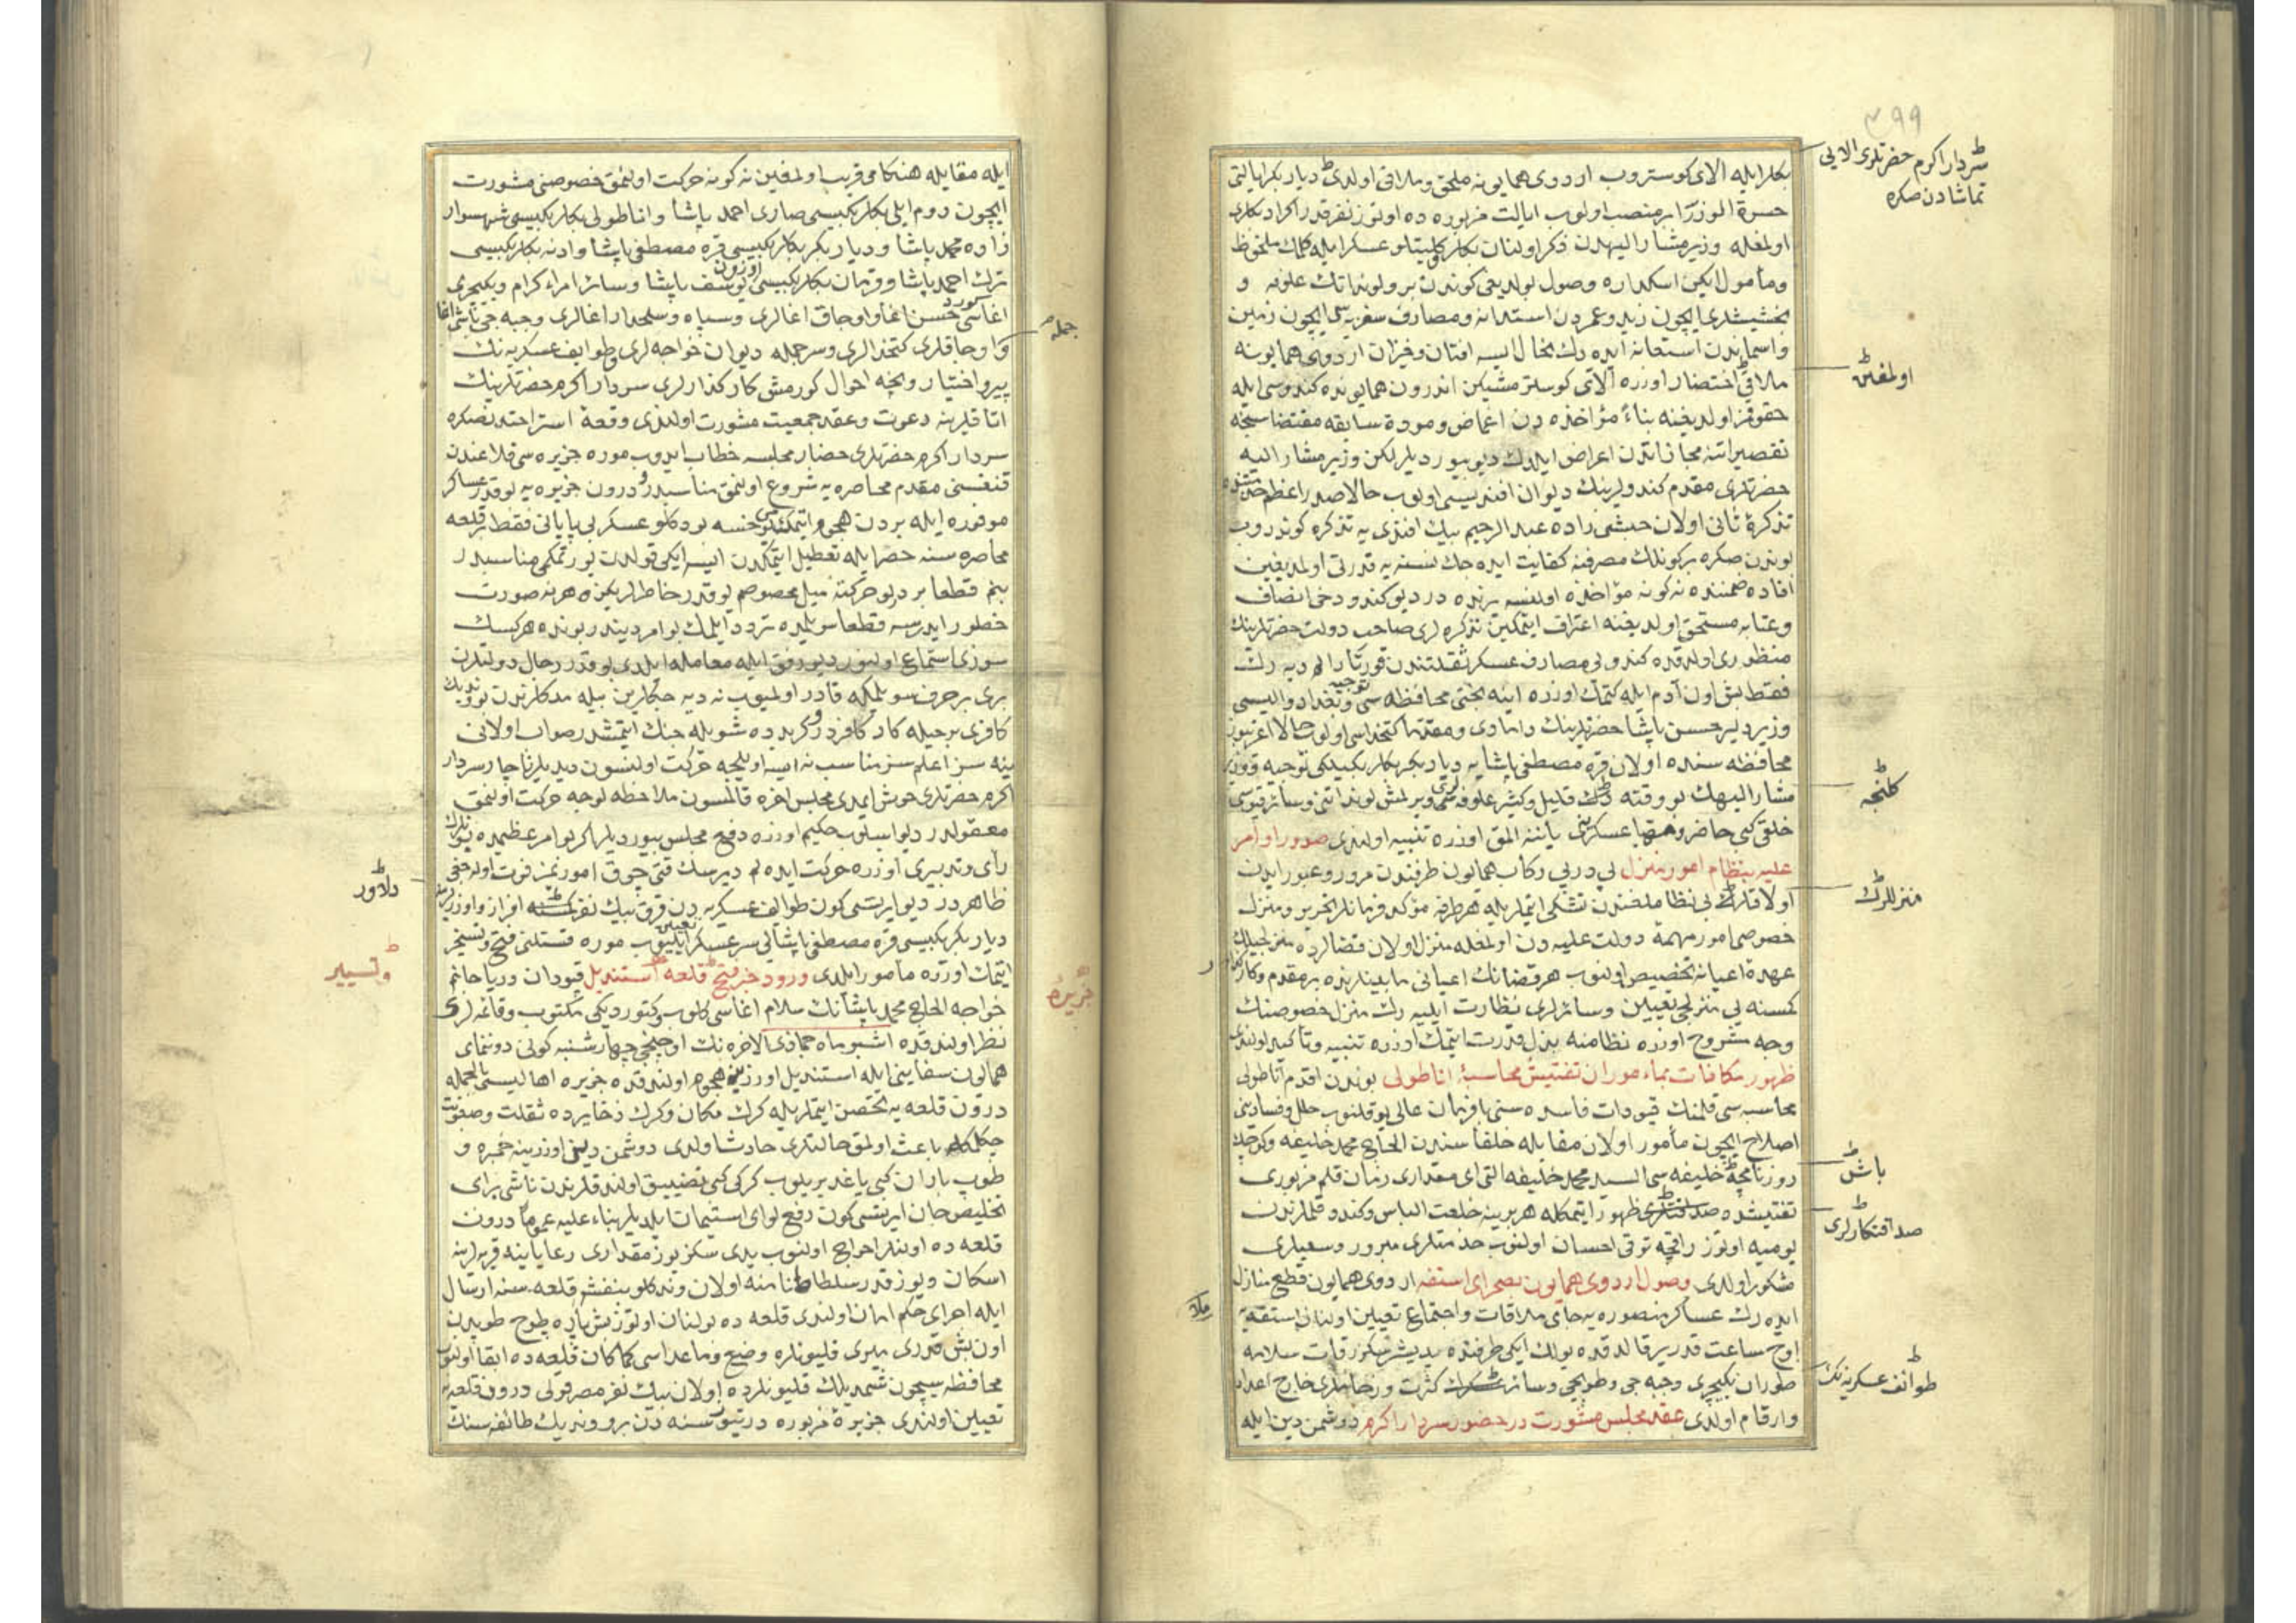 ٣٩٩
سردار اكرم حضرتلرى الايى
تماشادن صكره
بكلر ايله الاى كوستروب اردوى همايونه ملحق وملاقى اولدى ديار بكر ايالتى
حسرة الوزرا بر منصب اولوب ايالت مزبوره ده اوتوز نفر قدر اكراد بكلرى
اولمغله وزير مشار اليهدن ذكر اولنان بكلر كليتلو عسكر ايله كلمك ملحوظ
ومأمول ايكن اسكداره وصول بولديغى كوندن برو لونداتك علوفه و
بخشيشلرى ايچون زيد وعمردن استدانه ومصارف سفريه سى ايچون زمين
واسماندن استعانه ايده رك بحال ايسه افتان وخيزان اردوى همايونه
ملاقى اختصار اوزره الاى كوسترمشيكن اندرون همايونده كندوسى ايله
حقوقمز اولديغنه بناءً مؤاخذه دن اغماض ومودة سابقه مقتضاسنجه
تقصيراتنه مجازاتدن اعراض ايلدك ديو بيورديلر لكن وزير مشار اليه
حضرتلرى مقدم كندولرينك ديوان افنديسى اولوب حالا صدر اعظم
تذكرۀ ثانى اولان حبشى زاده عبد الرحيم بيك افندى يه تذكره كوندروب
بوندن صكره بر كونلك مصرفنه كفايت ايده جك نسنه يه قدرتى اولمديغين
افاده ضمننده نه كونه مؤاخذه اولنسه يرنده در ديو كندو دخى انصاف
وعتابه مستحق اولديغنه اعتراف ايتمكين تذكره لرى صاحب دولت حضرتلرينك
منظورى اولدقده كندويى مصارف عسكر ثقلتندن قورتارالم ديه رك
فقط بش اون آدم ايله كتمك اوزره اينه بختى محافظه سى توجيه وبغداد واليسى
وزير دلير حسن پاشا حضرتلرينك دامادى ومقدما كتخداسى اولوب حالا
محافظه سنده اولان قره مصطفى پاشايه ديار بكر بكلربكيلكى توجيه
مشار اليهك بو وقته دك قليل وكثير علوفه لرى ويرلمش لونداتنى وسائر قپوسى
خلقى كبى حاضر ومهيا عسكرينى ياننه المق اوزره تنبيه اولندى صدور اوامر
عليه بنظام امور منزل پى درپى ركاب همايون طرفندن مرور وعبور ايدن
اولاقلرك بى نظاملغندن تشكى ايتملريله هر طرفه مؤكد فرمانلر تحرير ومنزل
خصوصى امور مهمۀ دولت عليه دن اولمغله منزل اولان قضالرده
عهدۀ اعيانه تخصيص اولنوب هر قضانك اعيانى مابينلرنده بر مقدم وكار
كسنه يى منزلجى تعيين وسائرلرى نظارت ايليه رك منزل خصوصنك
وجه مشروح اوزره نظامنه بذل قدرت ايتمك اوزره تنبيه وتأكيد اولندى
ظهور مكافات بمأموران تفتيش محاسبۀ اناطولى بوندن اقدم اناطولى
محاسبه سى قلمنك قيودات فاسده سنى با فرمان عالى يوقلنوب خلل وفسادينى
اصلاح ايچون مأمور اولان مقابله خلفاسندن الحاج محمد خليفه وكوچك
روزنامچه خليفه سى السيد محمد خليفه التى اى مقدارى زمان قلم مزبورى
تفتيشده ظهور ايتمكله هر برينه خلعت الباس وكندو قلملرندن
يوميه اوتوزر اقچه ترقى احسان اولنوب خدمتلرى مبرور وسعيلرى
مشكور اولدى وصول اردوى همايون بصحراى استفه اردوى همايون قطع منازل
ايده رك عساكر منصوره يه جاى ملاقات واجتماع تعيين اولنان استفه يه
اوچ ساعت قدر ير قالدقده يولك ايكى طرفنده يديشر سكزر قات سلامه
طوران يكيچرى وجبه جى وطوپجى وسائر كثرت وزحاملرى خارج اعداد
وارقام اولدى عقد مجلس مشورت در حضور سردار اكرم دوشمن دين ايله
اولمغين
كلنجه
منزللرك
باش
صداقتكارلرى
طوائف عسكريه نك
ايله مقابله هنكامى قريب اولمغين نه كونه حركت اولنمق خصوصنى مشورت
ايچون روم ايلى بكلربكيسى صارى احمد پاشا واناطولى بكلربكيسى شهسوار
زاده محمد پاشا وديار بكر بكلربكيسى قره مصطفى پاشا وادنه بكلربكيسى
ترك احمد پاشا وقرمان بكلربكيسى اوزون يوسف پاشا وسائر امراء كرام ويكيچرى
اغاسى حسن اغا واوجاق اغالرى وسپاه وسلحدار اغالرى وجبه جى باشى اغا
واوجاقلرى كتخدالرى وسر جمله ديوان خواجه لرى وطوايف عسكريه نك
پير واختيار ونيجه احوال كورمش كاركذارلرى سردار اكرم حضرتلرينك
اتاقلرينه دعوت وعقد جمعيت مشورت اولندى وقعۀ استراحتدنصكره
سردار اكرم حضرتلرى حضار مجلسه خطاب ايدوب موره جزيره سى قلاعندن
قنغسنى مقدم محاصره يه شروع اولنمق مناسبدر ودرون جزيره يه بو قدر عساكر
موفوره ايله بردن هجوم ايتمك يوخسه بو دكلو عسكر بى پايانى فقط بر قلعه
محاصره سنه حصر ايله تعطيل ايتمكدن ايسه ايكى قولدن يورتمكمى مناسبدر
بنم قطعا بر درلو حركته ميل مخصوصم يوقدر خاطرلريكزه هر نه صورت
خطور ايدرسه قطعا سويلمده تردد ايلمك بو امر ديندر بونده هركسك
سوزى استماع اولنور ديو رفق ايله معامله ايلدى بو قدر رجال دولتلرن
برى بر حرف سويلمكه قادر اولميوب نه ديه جكلرين بيله مدكلرندن
كافرى بر حيله كار كافردر وكريدده شويله جنك ايتمشدر صواب اولانى
ينه سز اعلم سز مناسب نه ايسه اويلجه حركت اولنسون ديديلر ناچار سردار
اكرم حضرتلرى خوش ايمدى مجلس اخره قالسون ملاحظه اولنوجه حركت اولنمق
معقولدر ديو اسلوب حكيم اوزره دفع مجلس بيورديلر اكر بو امر عظيمده
رأى وتدبيرى اوزره حركت ايده لم ديرسك قتى چوق امورمز فوت اوله جغى
ظاهردر ديو ايرتسى كون طوايف عسكريه دن قرق بيك نفر افراز واوزرلرينه
ديار بكر بكلربكيسى قره مصطفى پاشايى سر عسكر تعيين ايليوب موره قستلنى فتح وتسخير
ايتمك اوزره مأمور ايلدى ورود خبر فتح قلعه استنديل قپودان دريا جانم
خواجه الحاج محمد پاشانك سلام اغاسى كلوب كتورديكى مكتوب وقائمه لرى
نظر اولندقده اشبو ماه جماذى الاخره نك اوچنجى چهارشنبه كونى دونمماى
همايون سفاينى ايله استنديل اوزرينه هجوم اولندقده جزيره اهاليسى بالجمله
درون قلعه يه تحصن ايتملريله كرك مكان وكرك ذخايرده ثقلت وصعوبت
چكمكله باعث اولمق حالتلرى حادث اولدى دوشمن دين اوزرينه خمبره و
طوپ باران كبى ياغديريلوب كركى كبى تضييق اولندقلرندن ناشى براى
تخليص جان ايرتسى كون رفع لواى استيمان ايلديلر بناء عليه عموماً درون
قلعه ده اولنلر اخراج اولنوب يدى سكز يوز مقدارى رعايا ينه قريه لرينه
اسكان ويوز قدر سلطاطنامنه اولان وندكلو بنفش قلعه سنه ارسال
ايله اجراى حكم امان اولندى قلعه ده بولنان اوتوز بش پاره طوج طوپدن
اون بش قدرى ميرى قليونلره وضع وماعداسى كما كان قلعه ده ابقا اولنوب
محافظه سيچون شمديلك قليونلرده اولان بيك نفر مصر قولى درون قلعه يه
تعيين اولندى جزيرۀ مزبوره درتيوز سنه دن برو ونديك طائفه سنك
جمله
دلاور
وتسيير
جزيره